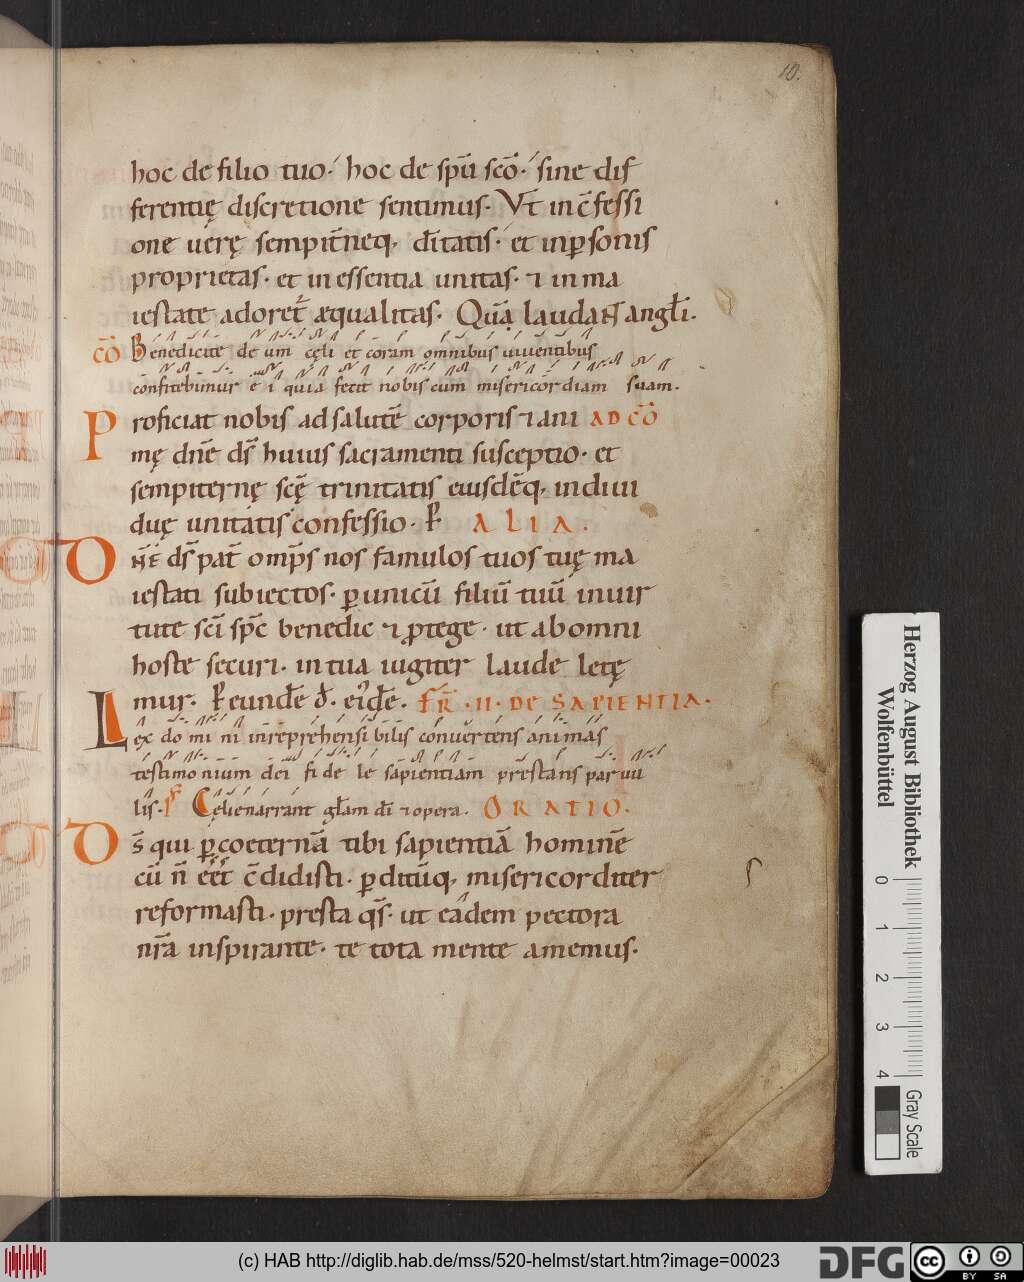 10.
hoc de filio tuo· hoc de spū scō· sine dis
ferentię discretione sentimus· Vt in c̄fessi
one uerę sempit̄neq, dītatis· et in ꝑsonis
proprietas· et in essentia unitas· ⁊ in ma
iestate adoret̄ æqualitas· Quā laudant angłi.
cō Benedicite deum cęli et coram omnibus uiuentibus
confitebimur ei quia fecit nobiscum misericordiam suam.
Proficiat nobis ad salutē corporis ⁊ ani AD CŌ
mę dn̄e ds̄ huius sacramenti susceptio· et
sempiternę scę̄ trinitatis eiusdēq, indiui
duę unitatis confessio· ALIA.
Dn̄e ds̄ pat̄ omp̄s nos famulos tuos tuę ma
iestati subiectos· ꝑ unicū filiū tuū in uir
tute scī sp̄c benedic ⁊ ꝓtege· ut ab omni
hoste securi· in tua iugiter laude letę
mur· ꝑ eundē đ. eīdē. FR̄ ·II· DE SAPIENTIA.
Lex domini inreprehensibilis conuertens animas
testimonium dei fidele sapientiam prestans paruu
lis· Celi enarrant gl̄am dī ⁊ opera. ORATIO.
Ds̄ qui ꝑ coeternā tibi sapientiā hominē
cū n̄ eēt c̄didisti· ꝑditūq, misericorditer
reformasti· presta qs̄· ut eādem pectora
nr̄a inspirante· te tota mente amemus·
Herzog August Bibliothek
Wolfenbüttel
0 1 2 3 4
Gray Scale
(c) HAB http://diglib.hab.de/mss/520-helmst/start.htm?image=00023
DFG
cc BY SA